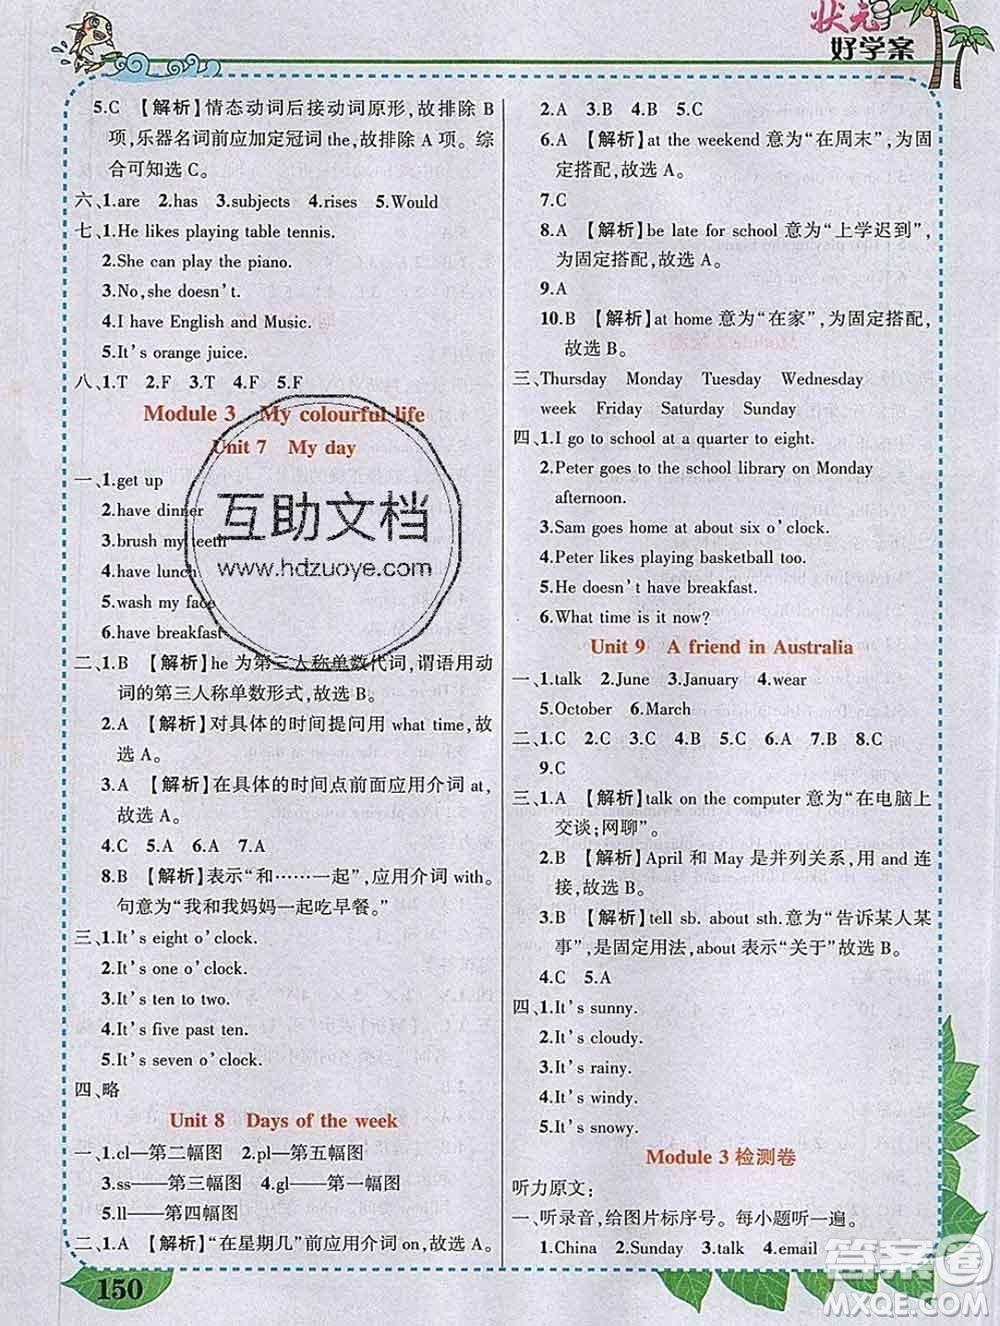 状元
好学案
5.C 【解析】情态动词后接动词原形,故排除 B
项,乐器名词前应加定冠词 the,故排除 A 项。综
合可知选 C。
六、1.are 2.has 3.subjects 4.rises 5.Would
七、1.He likes playing table tennis.
2.She can play the piano.
3.No,she doesn't.
4.I have English and Music.
5.It's orange juice.
八、1.T 2.F 3.F 4.F 5.F
Module 3 My colourful life
Unit 7 My day
一、1.get up
2.have dinner
3.brush my teeth
4.have lunch
5.wash my face
6.have breakfast
二、1.B 【解析】he 为第三人称单数代词,谓语用动
词的第三人称单数形式,故选 B。
2.A 【解析】对具体的时间提问用 what time,故
选 A。
3.A 【解析】在具体的时间点前面应用介词 at,
故选 A。
4.C 5.A 6.A 7.A
8.B 【解析】表示“和……一起”,应用介词 with。
句意为“我和我妈妈一起吃早餐。”
三、1.It's eight o'clock.
2.It's one o'clock.
3.It's ten to two.
4.It's five past ten.
5.It's seven o'clock.
四、略
Unit 8 Days of the week
一、1.cl—第二幅图 2.pl—第五幅图
3.ss——第三幅图 4.gl——第一幅图
5.ll——第四幅图
二、1.A 【解析】“在星期几”前应用介词 on,故选 A。
150
2.A 3.B 4.B 5.A
6.A 【解析】at the weekend 意为“在周末”,为固
定搭配,故选 A。
7.C
8.A 【解析】be late for school 意为“上学迟到”,
为固定搭配,故选 A。
9.A
10.B 【解析】at home 意为“在家”,为固定搭配,
故选 B。
三、Thursday Monday Tuesday Wednesday
week Friday Saturday Sunday
四、1.I go to school at a quarter to eight.
2.Peter goes to the school library on Monday
afternoon.
3.Sam goes home at about six o'clock.
4.Peter likes playing basketball too.
5.He doesn't have breakfast.
6.What time is it now?
Unit 9 A friend in Australia
一、1.talk 2.June 3.January 4.wear
5.October 6.March
二、1.C 2.C 3.C 4.B 5.C 6.A 7.B 8.C
9.C
三、1.A 【解析】talk on the computer 意为“在电脑上
交谈;网聊”。
2.B 【解析】April 和 May 是并列关系,用 and 连
接,故选 B。
3.B 【解析】tell sb. about sth.意为“告诉某人某
事”,是固定用法,about 表示“关于”故选 B。
4.C 5.A
四、1.It's sunny.
2.It's cloudy.
3.It's rainy.
4.It's windy.
5.It's snowy.
Module 3 检测卷
听力原文:
一、听录音,给图片标序号。每小题听一遍。
1.China 2.Sunday 3.talk 4.email
互助文档
www.hdzuoye.com
答案圈
MXQE.COM